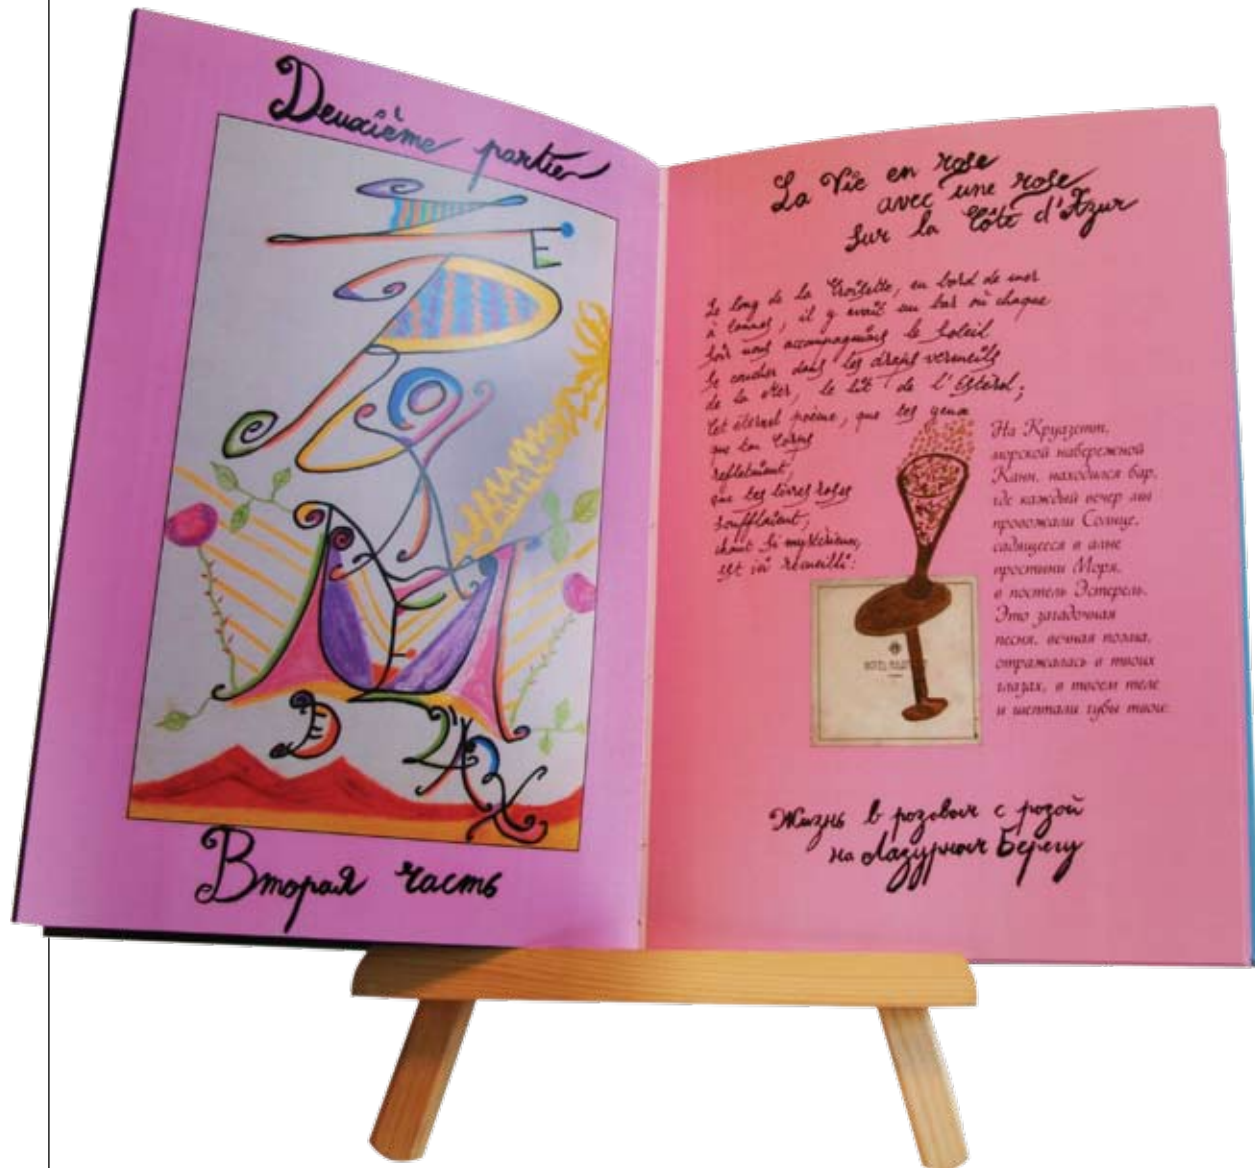 Deuxième partie
LE
D
E
Вторая часть
La Vie en rose
avec une rose
sur la Côte d'Azur
Le long de la Croisette, en bord de mer
à Cannes, il y avait un bar où chaque
soir nous accompagnions le Soleil
se coucher dans les draps vermeils
de la Mer, le lit de l'Estérel;
Cet éternel poème, que tes yeux
que ton Corps
reflétaient,
que tes lèvres roses
soufflaient,
chant si mystérieux,
est ici recueilli:
На Круазетт,
морской набережной
Канн, находился бар,
где каждый вечер мы
провожали Солнце,
садящееся в алые
простыни Моря,
в постель Эстерель.
Это загадочная
песня, вечная поэма,
отражалась в твоих
глазах, в твоем теле
и шептали губы твои:
HOTEL
Жизнь в розовом с розой
на Лазурном Берегу